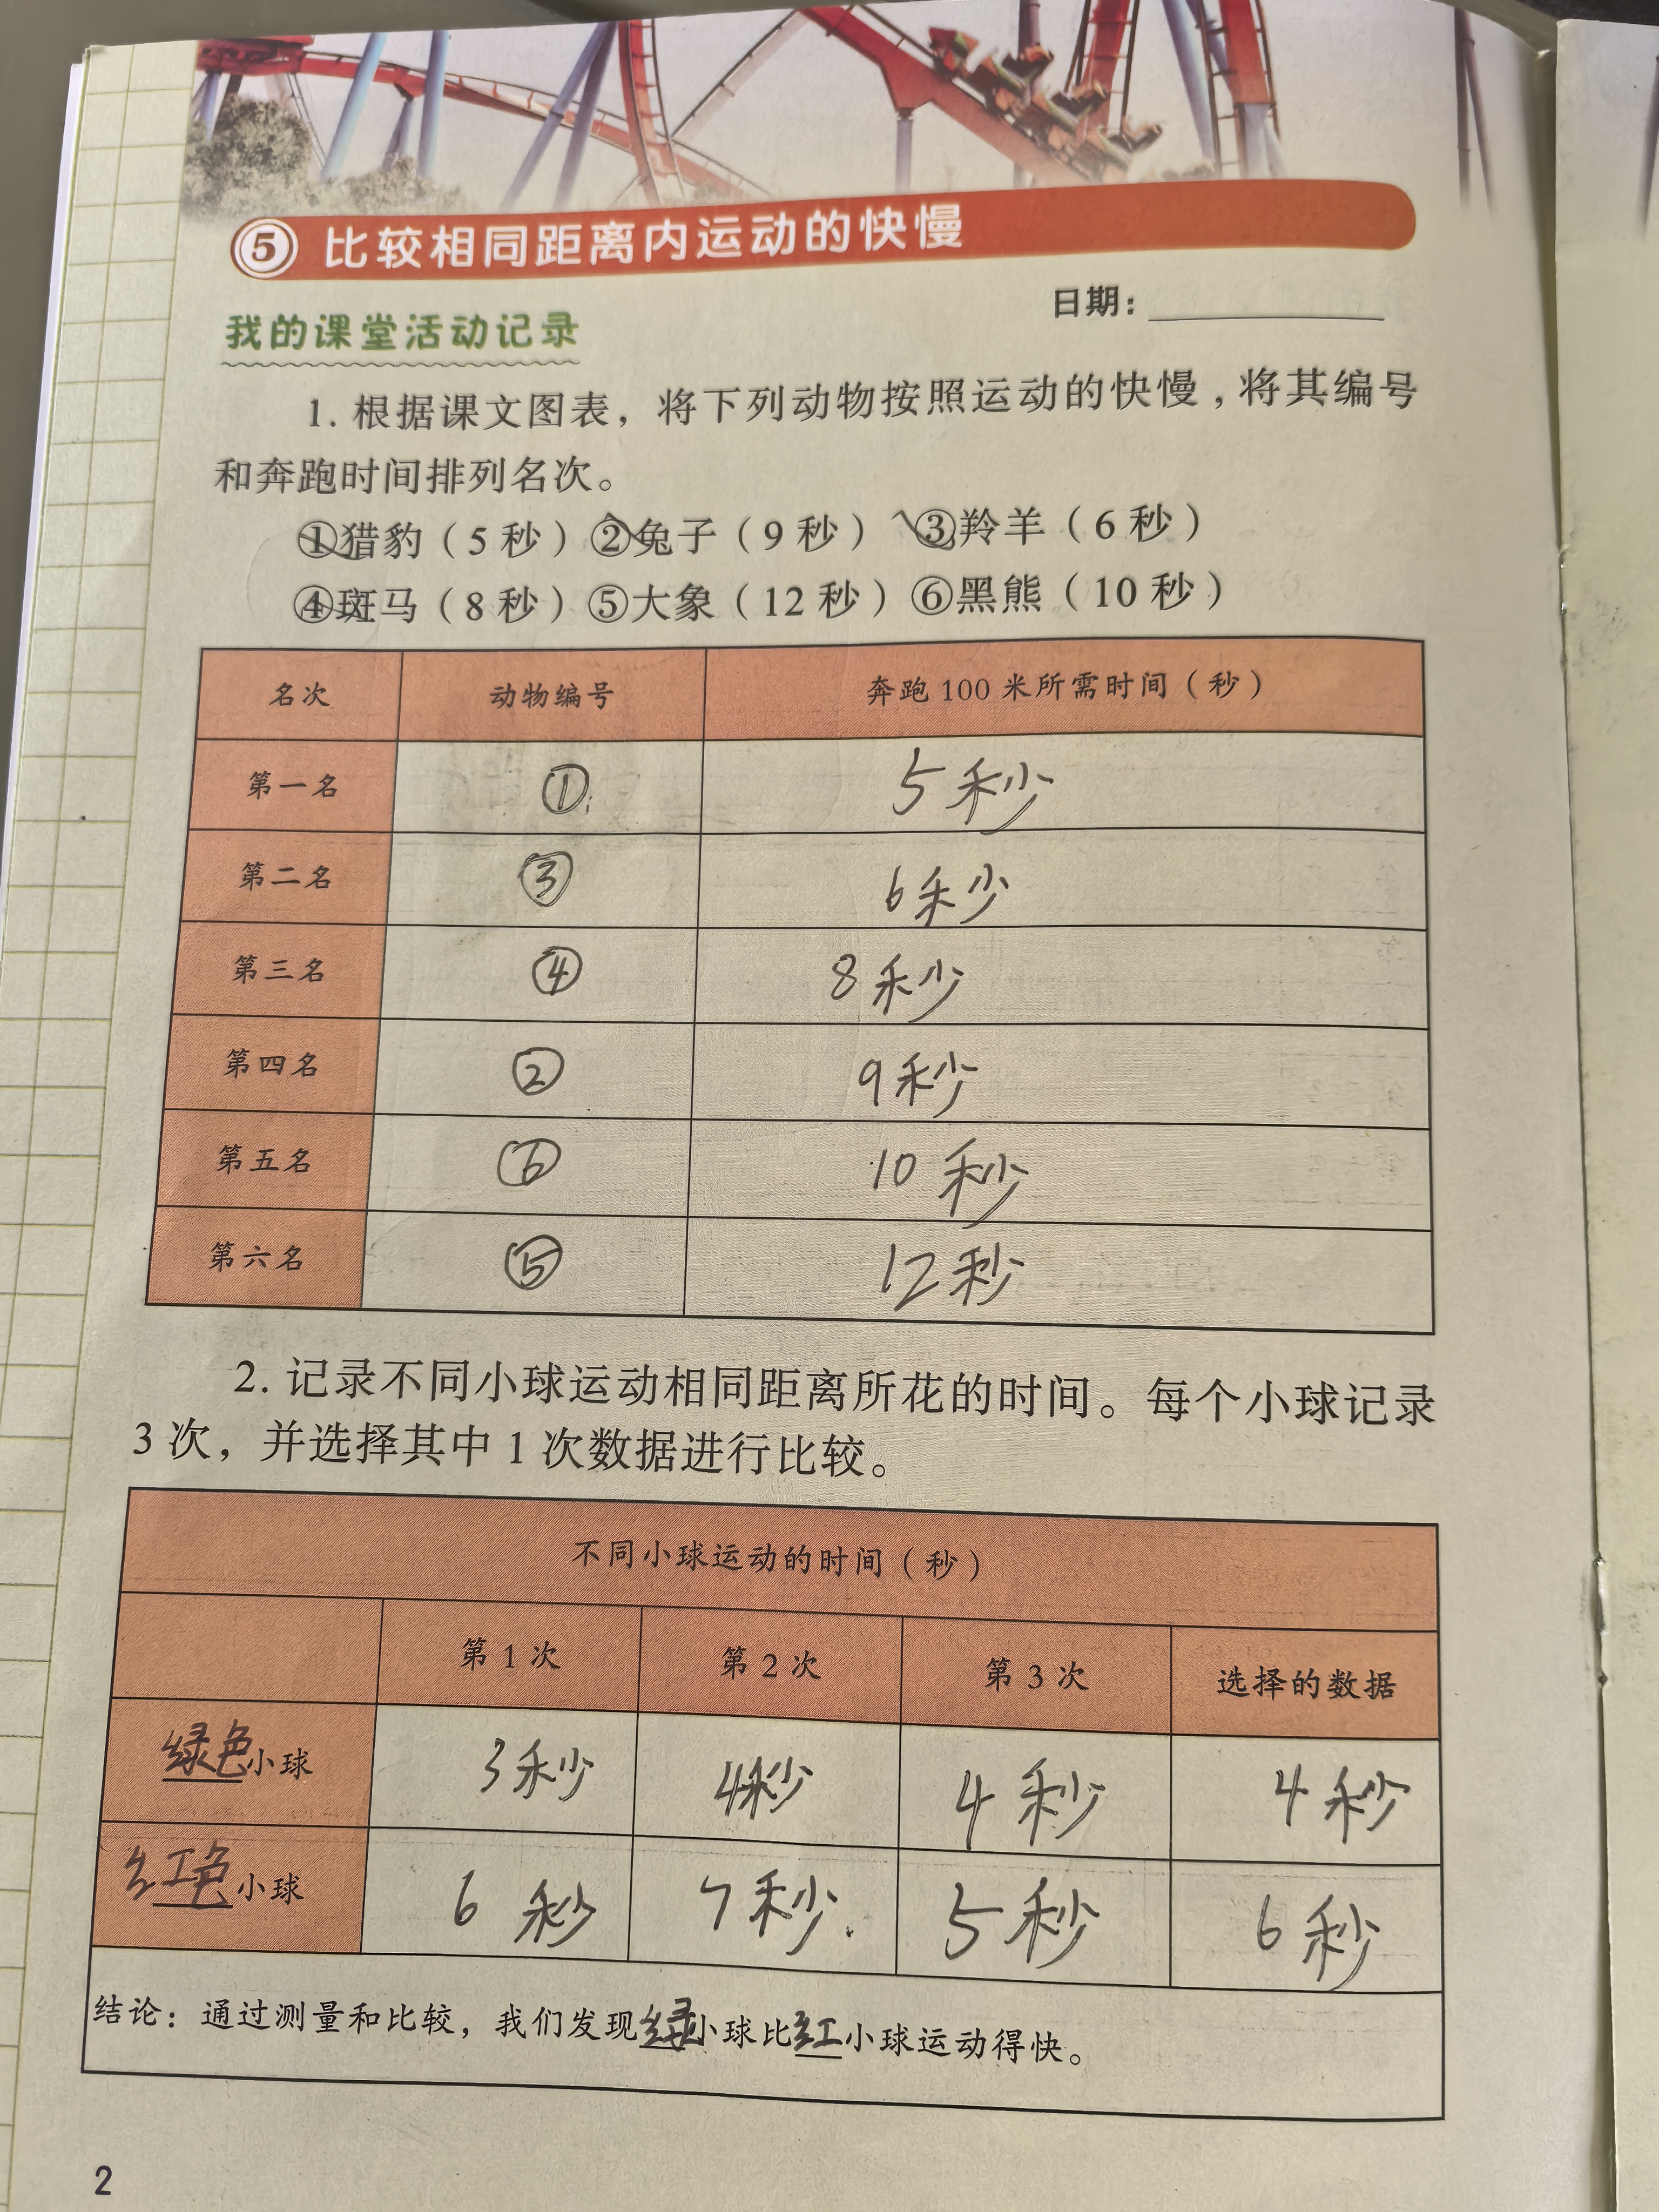 ⑤ 比较相同距离内运动的快慢
日期：
我的课堂活动记录
1. 根据课文图表，将下列动物按照运动的快慢，将其编号
和奔跑时间排列名次。
①猎豹（5 秒）②兔子（9 秒）③羚羊（6 秒）
④斑马（8 秒）⑤大象（12 秒）⑥黑熊（10 秒）
名次 动物编号 奔跑 100 米所需时间（秒）
第一名 ① 5秒
第二名 ③ 6秒
第三名 ④ 8秒
第四名 ② 9秒
第五名 ⑥ 10秒
第六名 ⑤ 12秒
2. 记录不同小球运动相同距离所花的时间。每个小球记录
3 次，并选择其中 1 次数据进行比较。
不同小球运动的时间（秒）
第 1 次 第 2 次 第 3 次 选择的数据
绿色小球 3秒 4秒 4秒 4秒
红色小球 6秒 7秒 5秒 6秒
结论：通过测量和比较，我们发现绿小球比红小球运动得快。
2